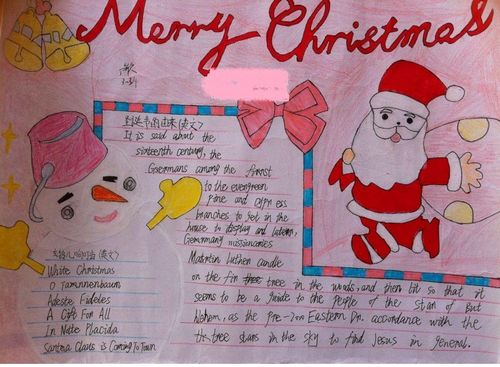 Merry Christmas
圣诞节的由来(英文)
It is said about the
sixteenth century, the
Germans among the finist
to the evergreen
pine and cypress
branches to get in the
house to display and latern,
Germany missionaries
Martin Luther candle
on the fin tree in the woods, and then lit so that it
seems to be a guide to the people of the stan of But
as the pre-2on Eastern Dn. accordance with the
tree stans in the sky to find Jesus in general.
(英文)
White Christmas
O Tannnenbaum
Adeste Fideles
A Gift For All
In Note Placida
Santma Claus is Coming To Town